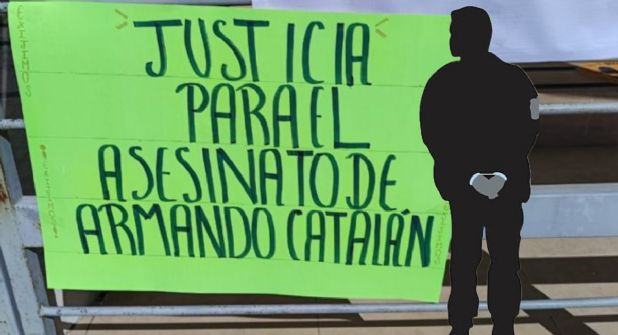 EXIJIMOS
JUSTICIA
PARA EL
ASESINATO DE
ARMANDO CATALÁN